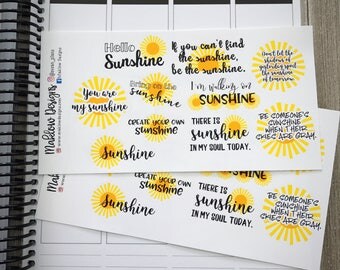 Hello
Sunshine
If you can't find
the sunshine,
be the sunshine.
Don't let the
shadows of
yesterday spoil
the sunshine
of tomorrow.
You are
my sunshine
Bring on the
sunshine
I'm walking on
SUNSHINE
Create your own
Sunshine
THERE IS
sunshine
IN MY SOUL TODAY.
BE SOMEONE'S
SUNSHINE
WHEN THEIR
SKIES ARE GRAY.
Sunshine
Mallow Designs
CREATE YOUR OWN
Sunshine
THERE IS
sunshine
IN MY SOUL TODAY.
BE SOMEONE'S
SUNSHINE
WHEN THEIR
SKIES ARE GRAY.
Sunshine